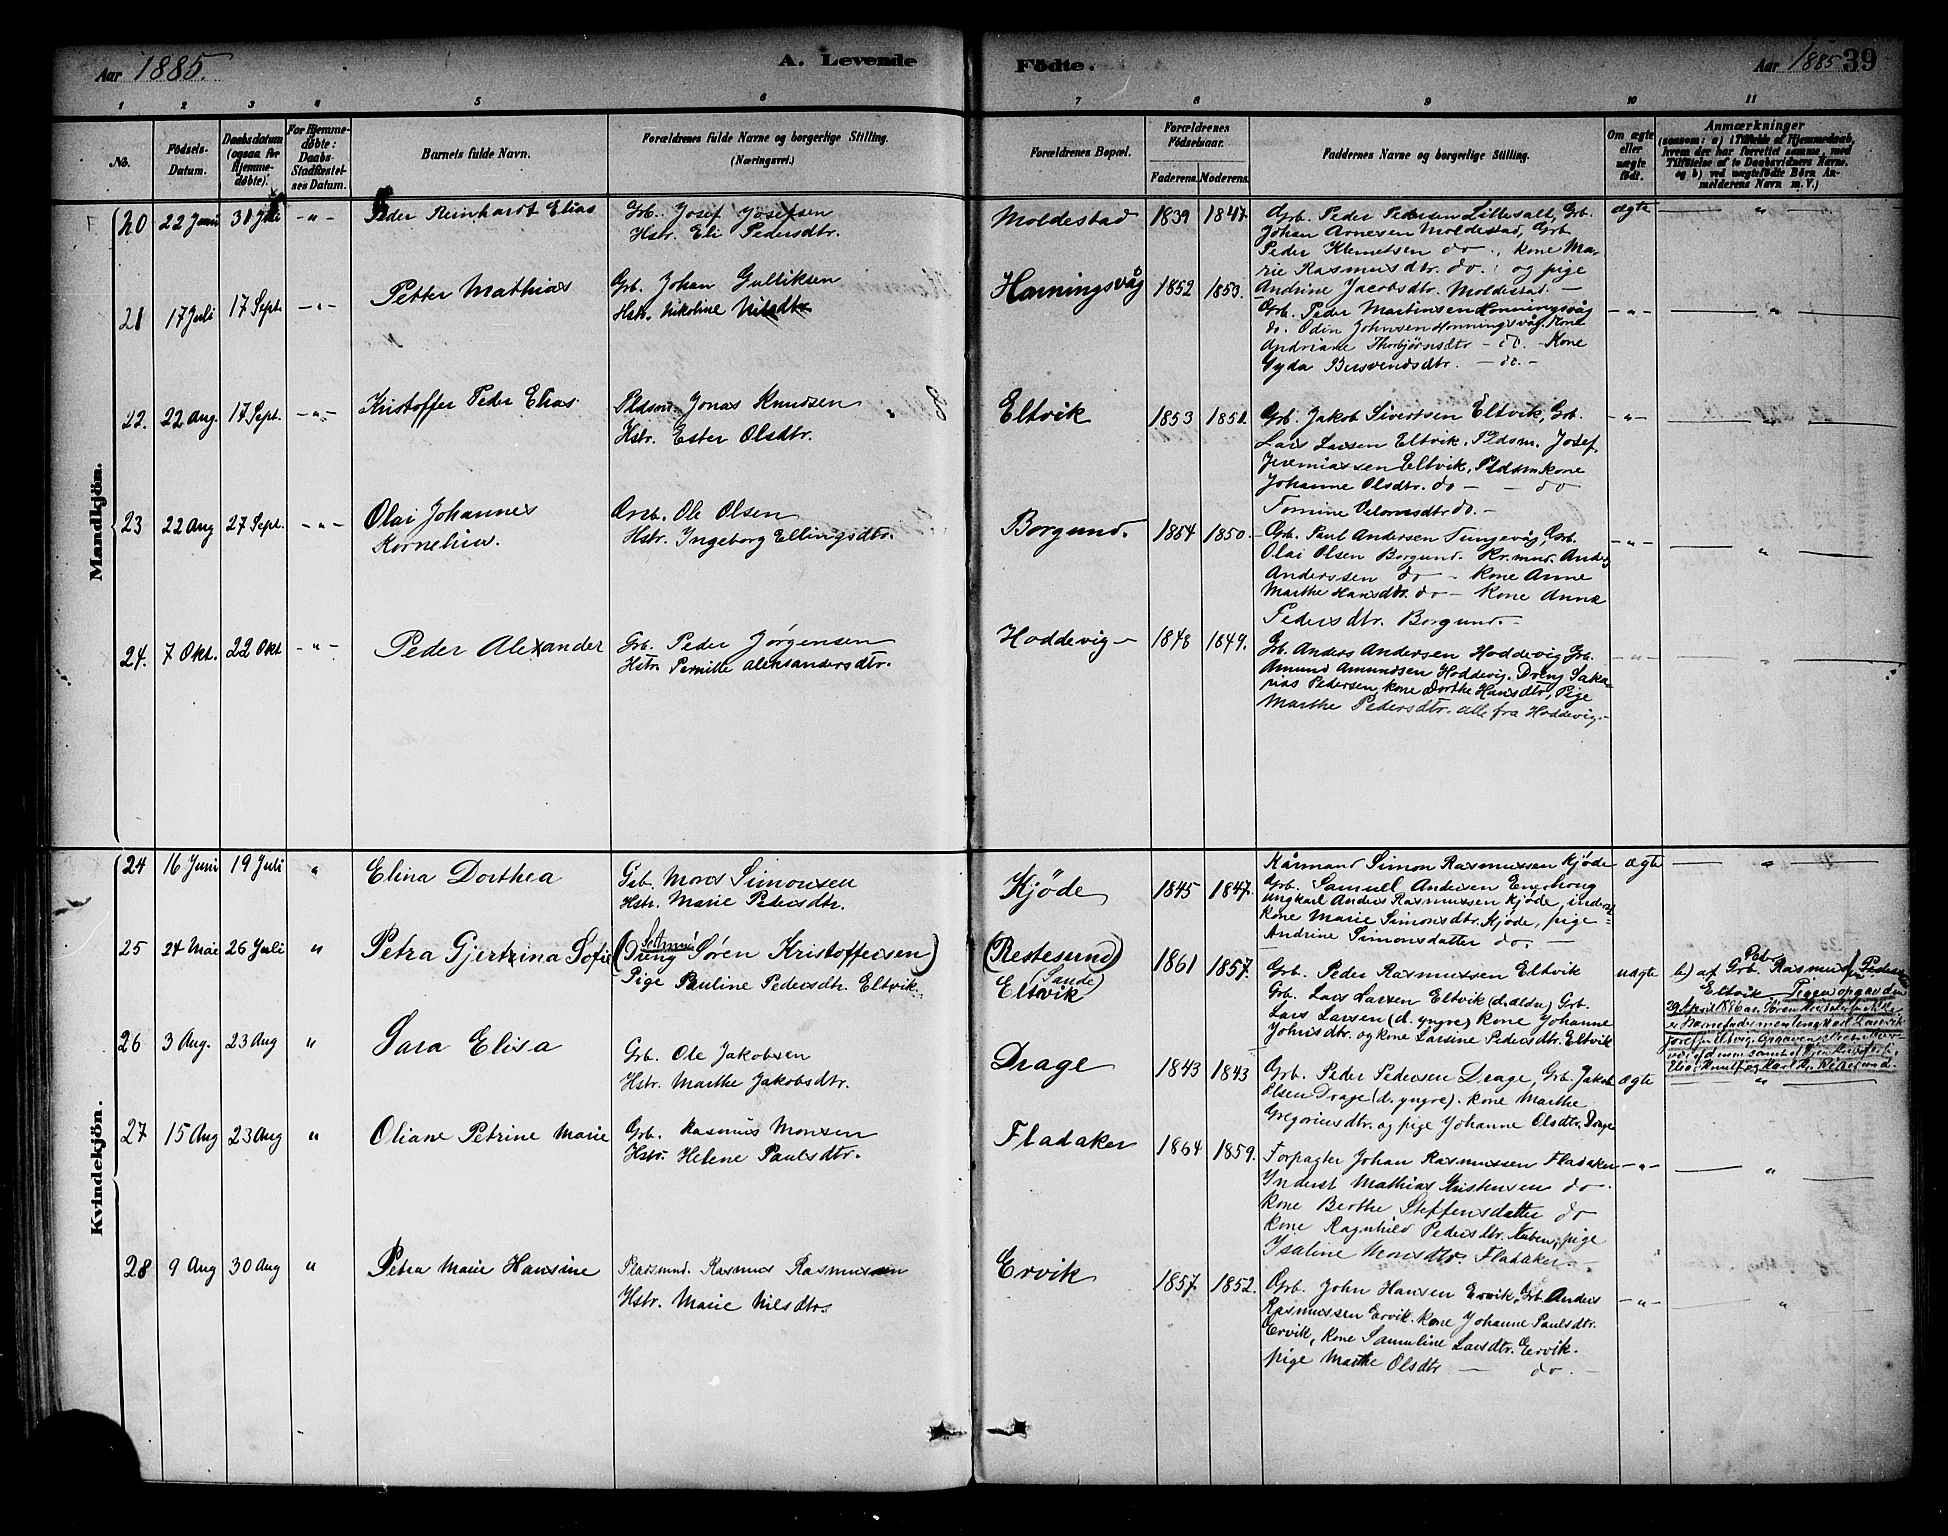 Aar 1885.
A. Levende
Födte.
Aar 1885 39
1 2 3 4 5 6 7 8 9 10 11
No.
Födsels-
Datum.
Daabsdatum
(ogsaa for
Hjemme-
døbte).
For Hjemme-
døbte:
Daabs-
Stadfæstel-
ses Datum.
Barnets fulde Navn.
Forældrenes fulde Navne og borgerlige Stilling.
(Næringsvei.)
Forældrenes Bopæl.
Forældrenes
Födselsaar.
Faderens. Moderens.
Faddernes Navne og borgerlige Stilling.
Om ægte
eller
uægte
födt.
Anmærkninger
(saasom: a) i Tilfælde af Hjemmedaab,
hvem der har forrettet samme, med
Tilföielse af to Daabsvidners Navne.
og b) ved uægtefödte Börn An-
melderens Navn m. V.)
Mandkjön.
20 22 Juni 30 Juli -"- Peder Reinhardt Elias
Grb. Josef Josefsen
Hstr. Eli Pedersdtr.
Moldestad 1839 1847.
Grb. Peder Pedersen Lillesalt, Grb.
Johan Arnesen Moldestad, Grb
Peder Klemetsen do. , kone Ma-
rie Rasmusdtr. do. , og pige
Andrine Jacobsdtr. Moldestad. -
ægte
21 17 Juli 17 Sept. -"- Petter Mathias
Grb. Johan Gulliksen
Hstr. Nikoline Nilsdtr
Honningsvåg 1852 1853.
Grb. Peder Martinsen Honningsvåg
do. Odin Johnsen Honningsvåg. Kone
Andriane Thorbjørnsdtr - do. - Kone
Gyda - do. -
-"-
22. 22 Aug. 17 Sept. -"- Kristoffer Peder Elias
Pldsm. Jonas Knudsen
Hstr. Ester Olsdtr.
Eltvik 1853 1851.
Grb. Jakob Sivertsen Eltvik, Grb.
Lars Larsen Eltvik, Pldsm. Josef
Jeremiassen Eltvik, Pldsmkone
Johanne Olsdtr. do - - do
Tomine do. -
-"-
23 22 Aug 27 Sept. -"- Olai Johannes
Kornelius.
Areb. Ole Olsen
Hstr. Ingeborg Ellingsdtr.
Borgund. 1854 1850.
Grb. Paul Andersen Tungevåg, Grb.
Olai Olsen Borgund. Kr.mnd. Anders
Anderssen do - Kone Anne
Marthe Hansdtr. do - Kone Anna
Pedersdtr. Borgund. -
-"-
24. 7 Okt. 22 Okt -"- Peder Alexander
Grb. Peder Jørgensen
Hstr. Pernille Aleksandersdtr.
Hoddevig - 1848 1849.
Grb. Anders Andersen Hoddevig Grb.
Amund Amundsen Hoddevig. Dreng Saka-
rias Pedersen, kone Dorthe Hansdtr, Pige
Marthe Pedersdtr. alle fra Hoddevig. -
-"-
Kvindekjön.
24 16 Juni 19 Juli " Elina Dorthea
Grb. Mons Simonsen
Hstr. Marie Pedersdtr.
Kjøde 1845 1847.
Kårmand Simon Rasmussen Kjøde
Grb. Samuel Andersen Enerhoug
Ungkarl Anders Rasmussen Kjøde, inderst
kone Marie Simonsdtr. Kjøde, pige
Andrine Simonsdatter do. -
ægte
25 24 Mai 26 Juli " Petra Gjertrina Sofie
(Dreng Søren Kristoffersen)
Pige Pauline Pedersdtr. Eltvik.
(Restesund)
(Sande)
Eltvik
1861 1857.
Grb. Peder Rasmussen Eltvik
Grb. Lars Larsen Eltvik (d. ældre) Grb.
Lars Larsen (d. yngre) kone Johanne
Johnsdtr. og kone Larsine Pedersdtr. Eltvik
uægte
b) af Grb. Rasmus Pedersen
Eltvik
26 3 Aug. 23 Aug " Sara Elisa
Grb. Ole Jakobsen
Hstr. Marthe Jakobsdtr.
Drage 1843 1843
Grb. Peder Pedersen Drage, Grb. Jakob
Olsen Drage (d. yngre). kone Marthe
Gregoriusdtr. og pige Johanne Olsdtr. Drage
ægte
27 15 Aug 23 Aug " Oliane Petrine Marie
Grb. Rasmus Monsen
Hstr. Helene Paulsdtr.
Fladaker 1864 1859.
Forpagter Johan Rasmussen Fladaker
Inderst Mathias Kristensen do
kone Berthe Steffensdatter do
kone Ragnhild Pedersdtr. Aaben, pige
Isaline Monsdtr. Fladaker. -
-"-
28 9 Aug 30 Aug " Petra Marie Hansine
Pladsmnd. Rasmus Rasmussen
Hstr. Marie Nilsdtr.
Ervik 1857. 1852.
Grb. John Hansen Ervik, Grb. Anders
Rasmussen Ervik. kone Johanne Paulsdtr.
Ervik, kone Samueline Larsdtr. Ervik.
pige Marthe Olsdtr - do. -
-"-